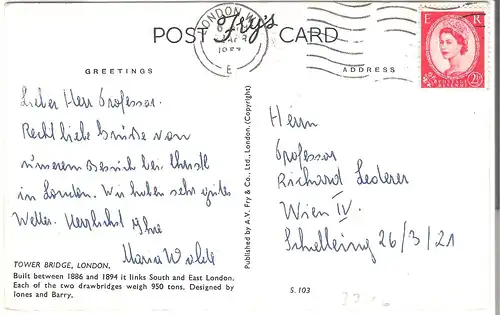 POST Fry's CARD
LONDON
E
E R
POSTAGE REVENUE
2½
GREETINGS
ADDRESS
Lieber Herr Professor.
Recht liebe Grüße von
unserem Besuch bei Christl
in London. Wir haben sehr gutes
Wetter. Herzlichst Ihre
Maria
Herrn
Professor
Richard Lederer
Wien IV.
Schelleing 26/3/21
Published by A.V. Fry & Co., Ltd., London. (Copyright)
TOWER BRIDGE, LONDON.
Built between 1886 and 1894 it links South and East London.
Each of the two drawbridges weigh 950 tons. Designed by
Jones and Barry.
S. 103